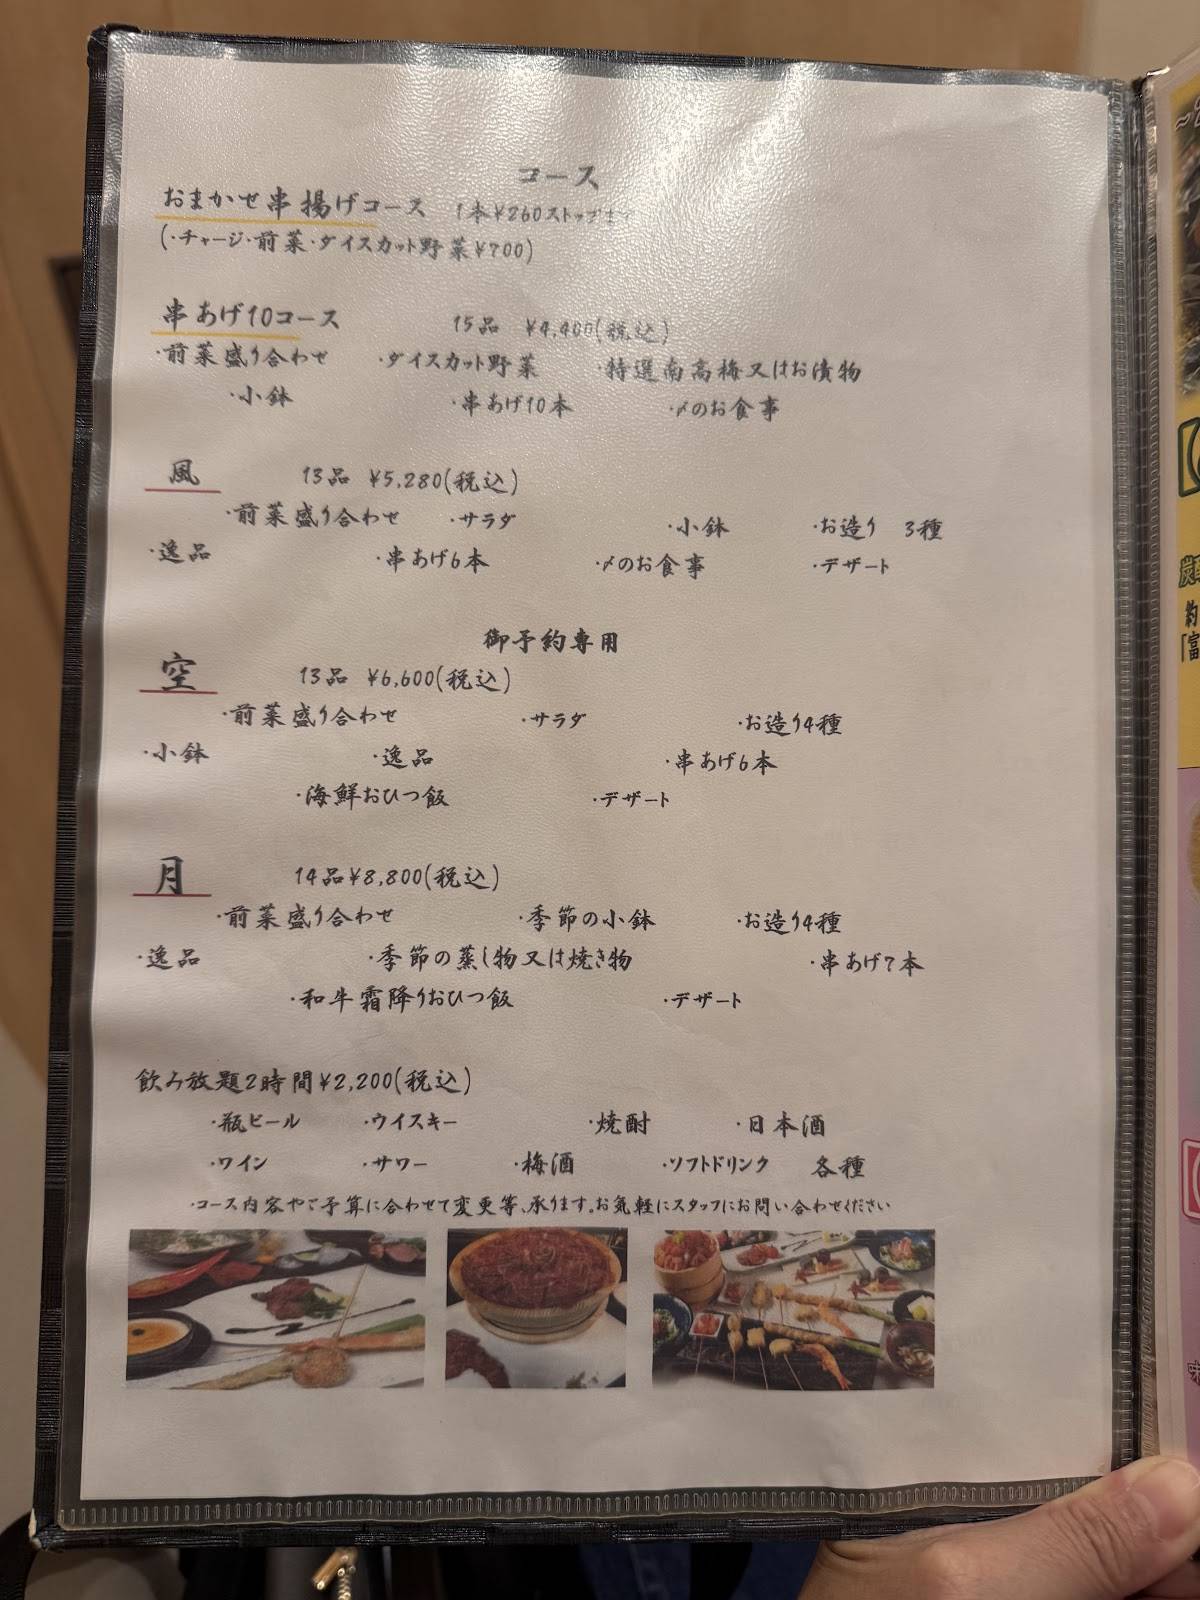 コース
おまかせ串揚げコース 1本¥260ストップまで
(・チャージ・前菜・ダイスカット野菜¥700)
串あげ10コース 15品 ¥4,400(税込)
・前菜盛り合わせ ・ダイスカット野菜 ・特選南高梅又はお漬物
・小鉢 ・串あげ10本 ・〆のお食事
風 13品 ¥5,280(税込)
・前菜盛り合わせ ・サラダ ・小鉢 ・お造り 3種
・逸品 ・串あげ6本 ・〆のお食事 ・デザート
御予約専用
空 13品 ¥6,600(税込)
・前菜盛り合わせ ・サラダ ・お造り4種
・小鉢 ・逸品 ・串あげ6本
・海鮮おひつ飯 ・デザート
月 14品¥8,800(税込)
・前菜盛り合わせ ・季節の小鉢 ・お造り4種
・逸品 ・季節の蒸し物又は焼き物 ・串あげ7本
・和牛霜降りおひつ飯 ・デザート
飲み放題2時間¥2,200(税込)
・瓶ビール ・ウイスキー ・焼酎 ・日本酒
・ワイン ・サワー ・梅酒 ・ソフトドリンク 各種
・コース内容やご予算に合わせて変更等、承ります。お気軽にスタッフにお問い合わせください